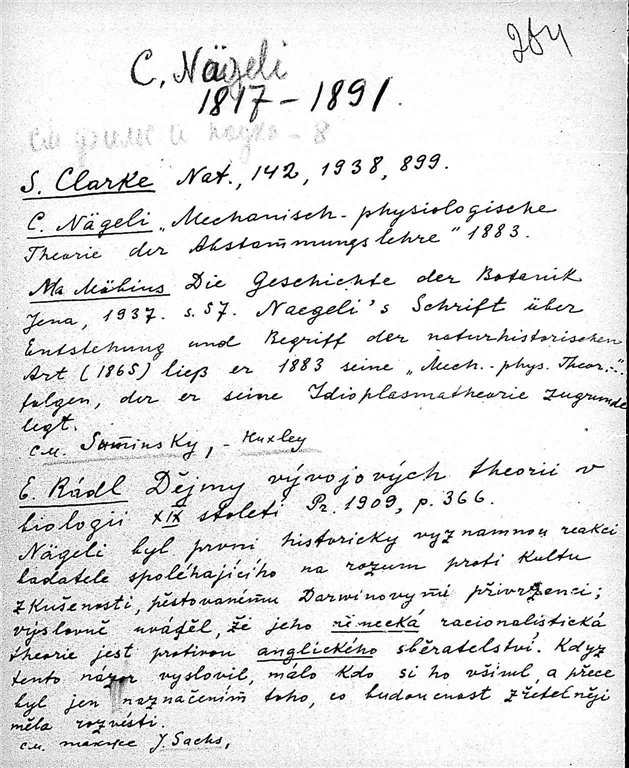 204
C. Nägeli
1817 – 1891.
см и – 8
S. Clarke Nat., 142, 1938, 899.
C. Nägeli „Mechanisch-physiologische
Theorie der Abstammungslehre" 1883.
Ma Möbius Die Geschichte der Botanik
Jena, 1937. s. 57. Naegeli's Schrift über
Entstehung und Begriff der naturhistorischen
Art (1865) ließ er 1883 seine „Mech.-phys. Theor.–".
folgen, der er seine Idioplasmatheorie zugrunde
legt.
см. Sominsky, – Huxley
E. Rádl Dějmy vývojových theorii v
biologii XIX století Pr. 1909, p. 366.
Nägeli byl první historicky významnou reakci
badatele spoléhajícího na rozum proti kultu
zkušenosti, pěstovanému Darwinovymi přivrženci;
výslovně uváděl, že jeho německá racionalistická
theorie jest protivou anglického sběratelství. Kdyz
tento názor vyslovil, málo kdo si ho všiml, a přece
byl jen naznačením toho, co budoucnost zřetelněji
měla rozvésti.
см. также J. Sachs,